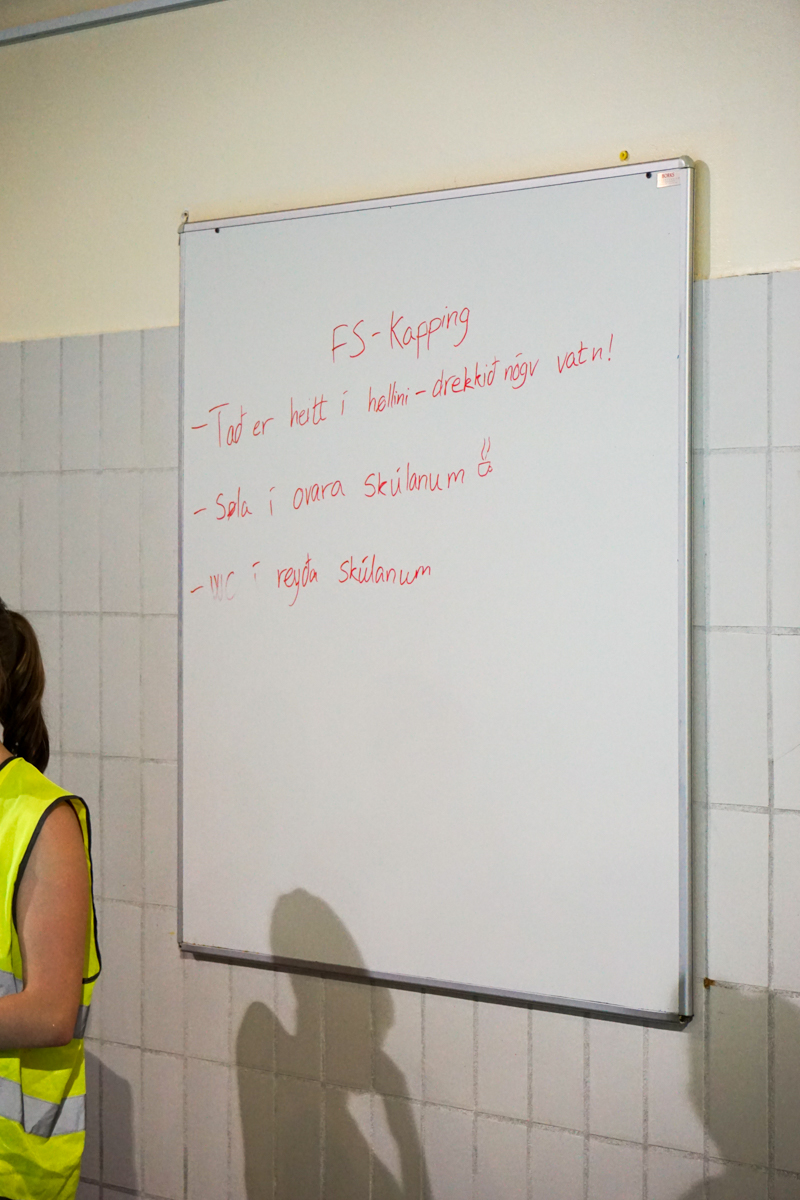 FS-Kapping
- Tað er heitt í høllini - drekkið nógv vatn!
- Søla í ovara skúlanum
- WC í reyða skúlanum